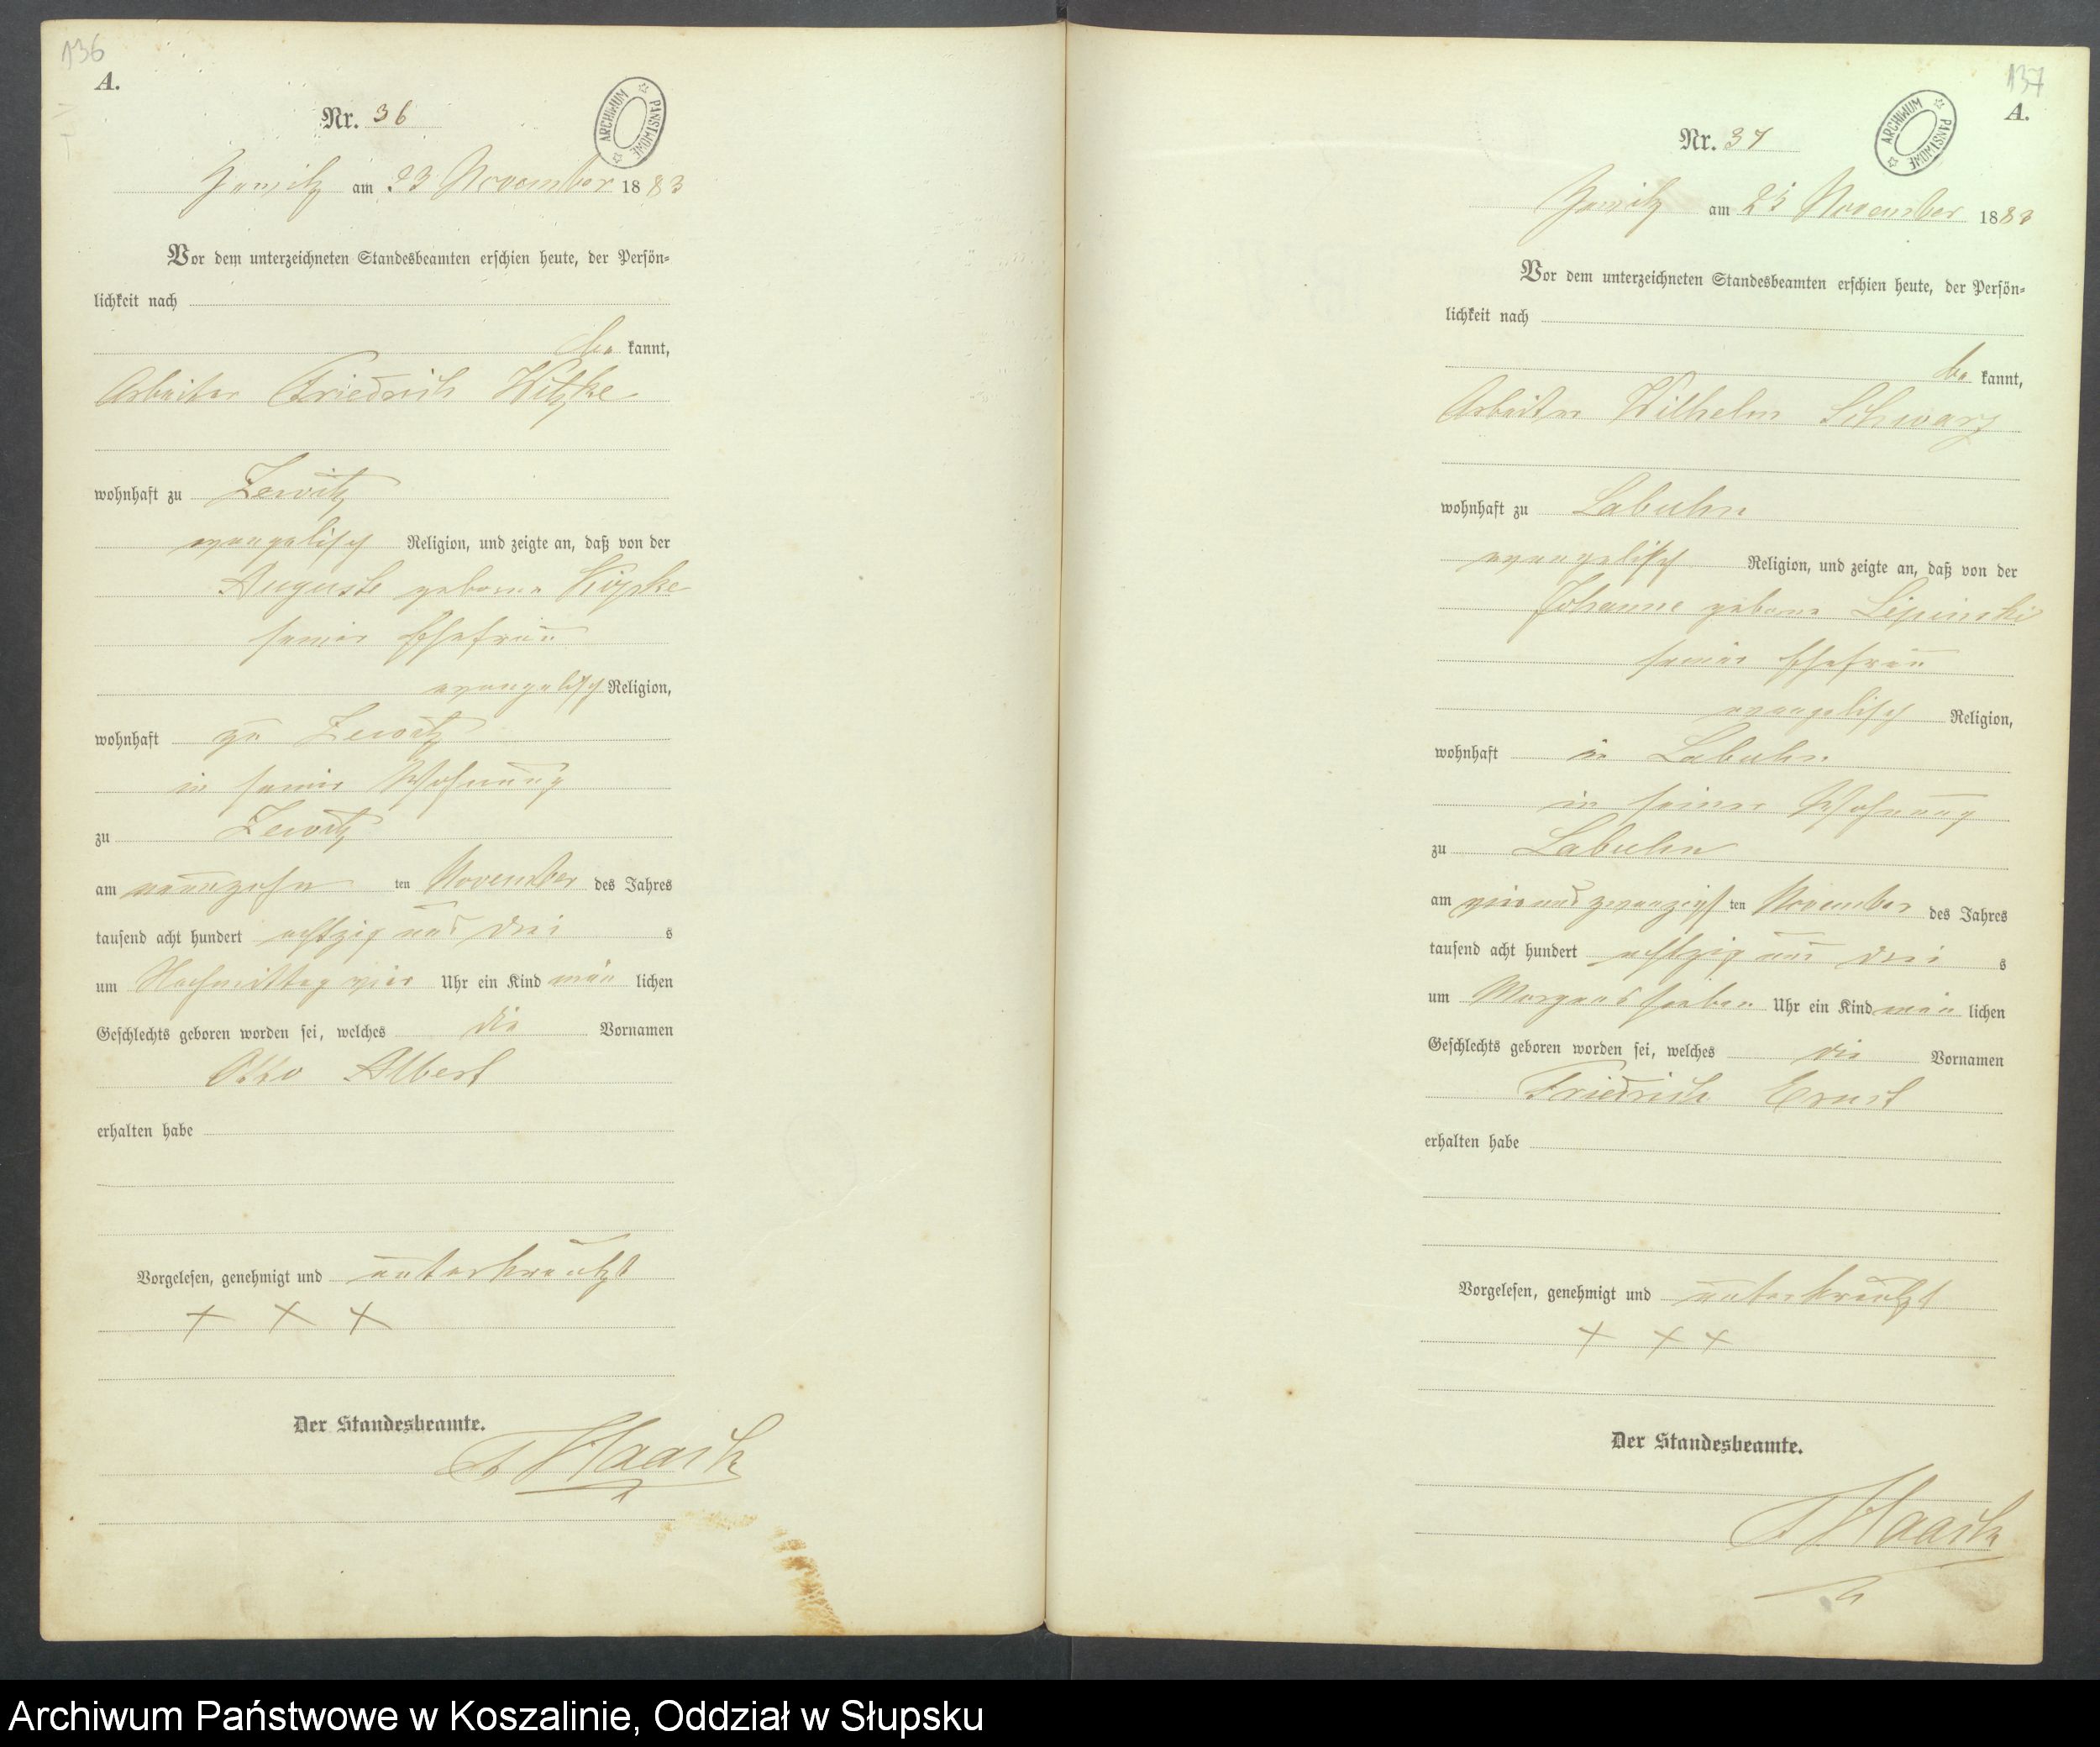 136
A.
Nr. 36
ARCHIWUM PAŃSTWOWE
am 23 November 1883
Vor dem unterzeichneten Standesbeamten erschien heute, der Persön=
lichkeit nach
be kannt,
Arbeiter Friedrich Witzke
wohnhaft zu Zewitz
evangelisch Religion, und zeigte an, daß von der
Auguste geborne Köpke
seiner Ehefrau
evangelisch Religion,
wohnhaft zu Zewitz
in seiner Wohnung
zu Zewitz
am neunzehn ten November des Jahres
tausend acht hundert achtzig und drei s
um Nachmittag vier Uhr ein Kind män lichen
Geschlechts geboren worden sei, welches die Vornamen
Otto Albert
erhalten habe
Vorgelesen, genehmigt und unterkreuzt
+ + +
Der Standesbeamte.
137
A.
Nr. 37
ARCHIWUM PAŃSTWOWE
am 25 November 1883
Vor dem unterzeichneten Standesbeamten erschien heute, der Persön=
lichkeit nach
be kannt,
Arbeiter Wilhelm Schwarz
wohnhaft zu Labuhn
evangelisch Religion, und zeigte an, daß von der
Johanne geborne Lipinski
seiner Ehefrau
evangelisch Religion,
wohnhaft in Labuhn
in seiner Wohnung
zu Labuhn
am vierundzwanzigst ten November des Jahres
tausend acht hundert achtzig und drei s
um Morgens sieben Uhr ein Kind män lichen
Geschlechts geboren worden sei, welches die Vornamen
Friedrich Ernst
erhalten habe
Vorgelesen, genehmigt und unterkreuzt
+ + +
Der Standesbeamte.
Archiwum Państwowe w Koszalinie, Oddział w Słupsku